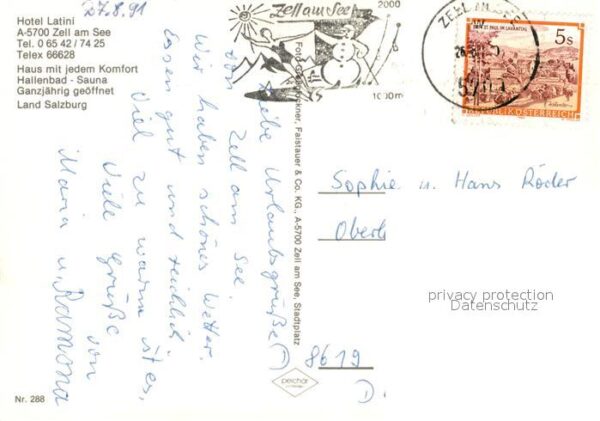 27.8.91
Hotel Latini
A-5700 Zell am See
Tel. 0 65 42 / 74 25
Telex 66628
Haus mit jedem Komfort
Hallenbad - Sauna
Ganzjährig geöffnet
Land Salzburg
Zell am See
2000
1000m
ZELL AM SEE
5s
REPUBLIK ÖSTERREICH
Liebe Urlaubsgrüße
von Zell am See.
Wir haben schönes Wetter.
Essen gut und reichlich.
Viel zu warm ist es,
Viele Grüße von
Maria u. Ramona
Faistauer & Co. KG., A-5700 Zell am See, Stadtplatz
Sophie u. Hans Röder
Oberl
8619
D.
privacy protection
Datenschutz
Nr. 288